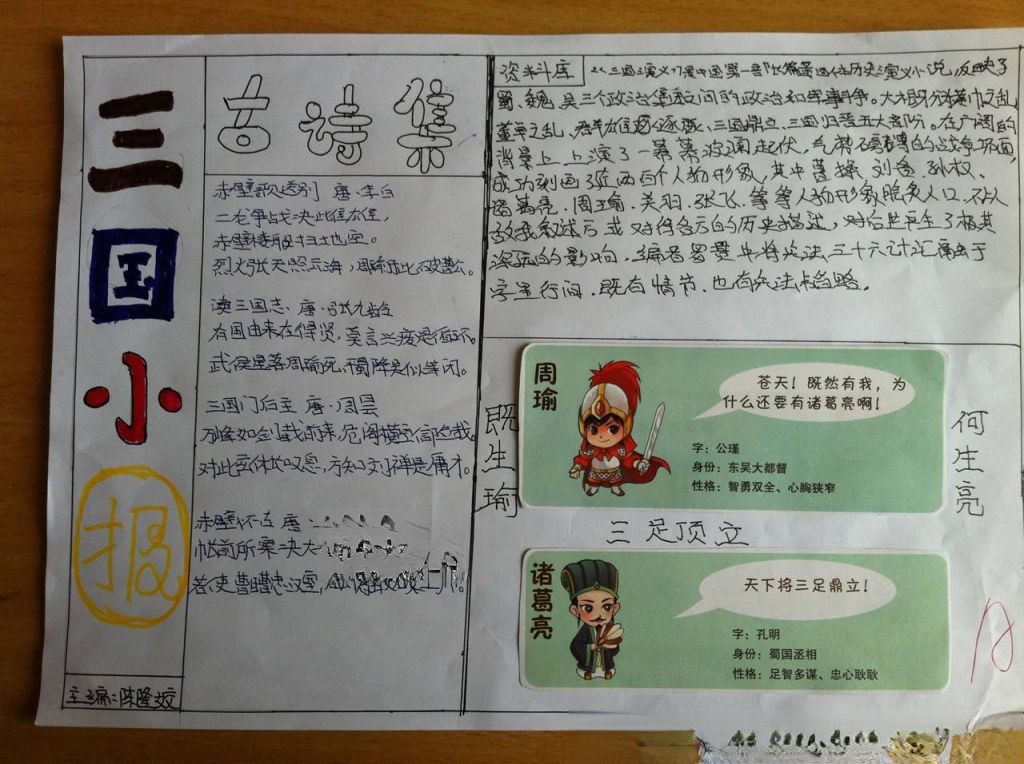 三
国
小
报
主编:陈隆姣
古诗集
赤壁歌送别 唐·李白
二龙争战决此雌雄,
赤壁楼船扫地空。
烈火张天照云海,周瑜于此破曹公。
读三国志·唐·张九龄
有国由来在得贤,莫言兴废是循环。
武侯星落周瑜死,蜀降吴似等闲。
三国门后主 唐·周昙
对此宜休长叹息,方知刘禅是庸才。
赤壁怀古 唐
帐前所案决大
若使曹瞒忠汉室,
资料库
《三国演义》是中国第一部长篇章回体历史演义小说,反映了
蜀、魏、吴三个政治集团之间的政治和军事斗争。大概分为黄巾之乱,
董卓之乱、群雄逐鹿、三国鼎立、三国归晋五大部分。在广阔的
背景上,上演了一幕幕波澜起伏,气势磅礴的战争场面,
成功刻画了近两百个人物形象,其中曹操、刘备、孙权、
诸葛亮、周瑜、关羽、张飞、等等人物形象脍炙人口,不以
敌我叙述方式对待各方的历史描述,对后世产生了极其
深远的影响。编者罗贯中将兵法三十六计汇融于
字里行间,既有情节,也有兵法韬略。
既生瑜
周瑜
苍天!既然有我,为
什么还要有诸葛亮啊!
字:公瑾
身份:东吴大都督
性格:智勇双全、心胸狭窄
何生亮
三足顶立
诸葛亮
天下将三足鼎立!
字:孔明
身份:蜀国丞相
性格:足智多谋、忠心耿耿
A